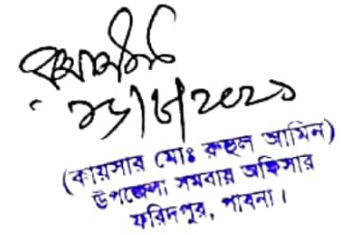 ২৬/৮/২০২১
(কায়সার মোঃ রুহুল আমিন)
উপজেলা সমবায় অফিসার
ফরিদপুর, পাবনা।